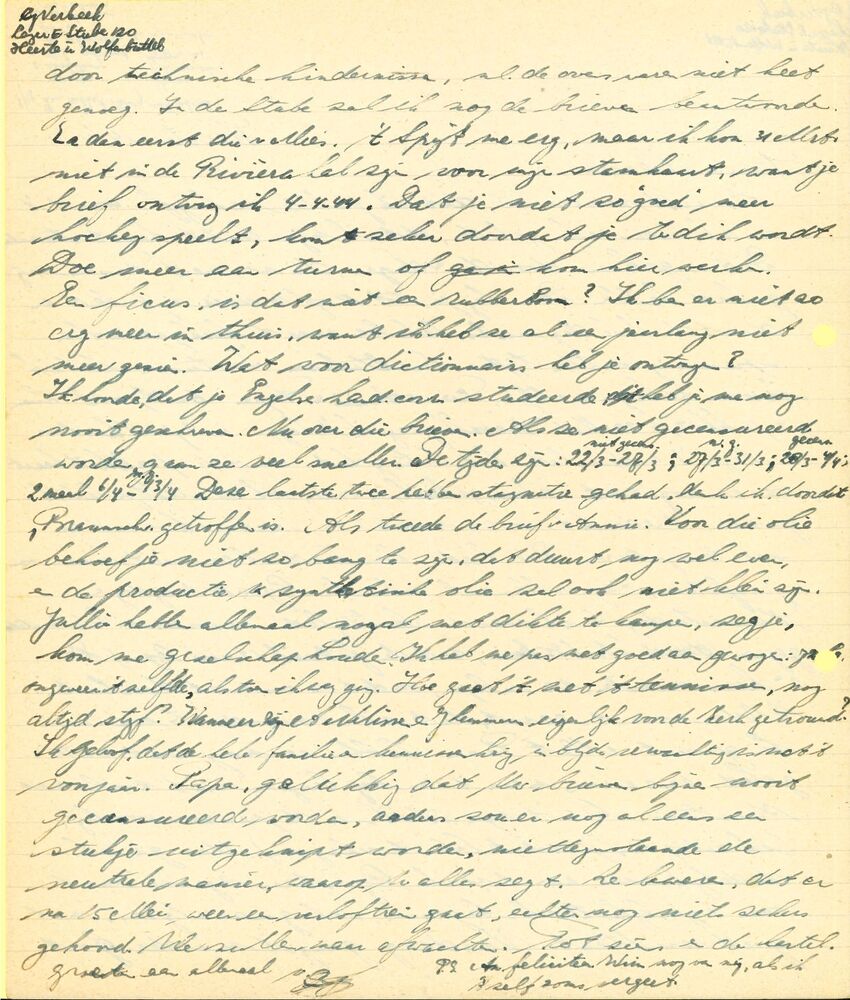 G Verbeek
Lager E Stube 120
Heerte ü Wolfenbüttel
door technische hindernissen, nl. de oven was niet heet
genoeg. In de Stube zal ik nog de brieven beantwoorden.
En dan eerst die v Mies. 't Spijt me erg, maar ik kon 31 Mrt.
niet in de Rivièra hal zijn voor mijn stamkaart, want je
brief ontving ik 4-4-44. Dat je niet zo goed meer
hockey speelt, komt zeker doordat je te dik wordt.
Doe meer aan turnen of kom hier werken.
Een ficus, is dat niet een rubberboom? Ik ben er niet zo
erg meer in thuis, want ik heb ze al een jaar lang niet
meer gezien. Wat voor dictionnairs heb je ontvangen?
Ik hoorde, dat je Engelse hand. corr. studeerde, dit heb je me nog
nooit geschreven. Nu over die brieven. Als ze niet gecensureerd
worden, gaan ze veel sneller. De tijden zijn: 22/3 - 28/3 ; 27/3 - 31/3 ;
niet gecens. n. g. gecens.
2 maal 6/4 - Deze laatste twee hebben stagnatie gehad, denk ik, doordat
Braunschw. getroffen is. Als tweede de brief v Annie. Voor die olie
behoef je niet zo bang te zijn, dat duurt nog wel even,
en de productie v synthetische olie zal ook niet klein zijn.
Jullie hebben allemaal nogal met dikte te kampen, zeg je,
kom me gezelschap houden. Ik heb me pas met goed aan gewogen:
ongeveer 't zelfde, als toen ik weg ging. Hoe gaat 't met 't tennissen, nog
altijd stijf? Wanneer zijn en eigenlijk voor de Kerk getrouwd?
Ik geloof, dat de hele familie in blijde verwachting is met 't
voorjaar. Papa, gelukkig dat Uw brieven bijna nooit
gecensureerd worden, anders zou er nog al eens een
stukje uitgeknipt worden, niettegenstaande de
neutrale manier, waarop U alles zegt. Ze beweren, dat er
na 15 Mei weer een verloftrein gaat, echter nog niets zekers
gehoord. We zullen maar afwachten. Tot ziens en de hartel.
groeten aan allemaal v G
P.S. feliciteer Wim nog van mij, als ik
't zelf soms vergeet.